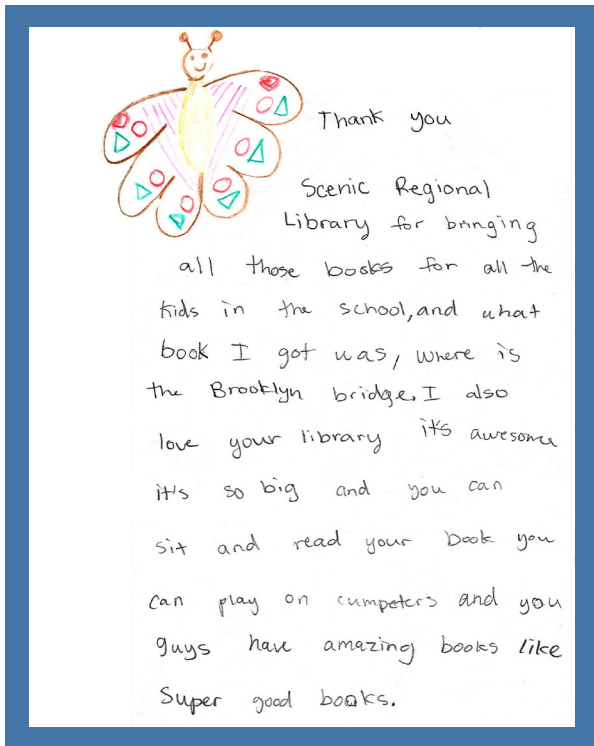 Thank you
Scenic Regional
Library for bringing
all those books for all the
kids in the school, and what
book I got was, where is
the Brooklyn bridge. I also
love your library it's awesome
it's so big and you can
sit and read your book you
can play on cumpeters and you
guys have amazing books like
Super good books.